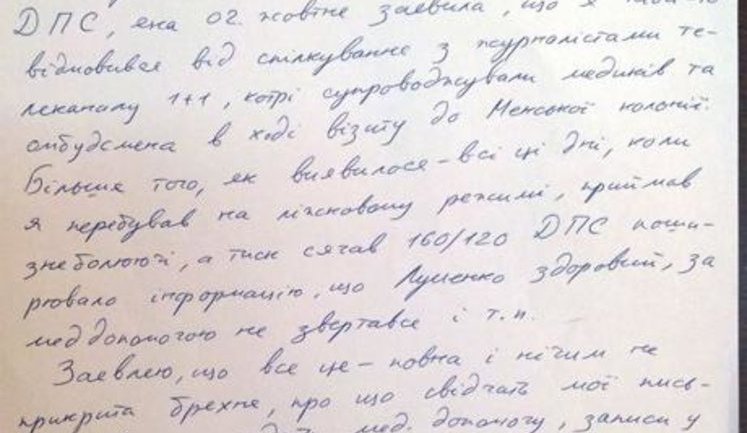 ДПС, яка 02. жовтня заявила, що я
відмовився від спілкування з журналістами те-
леканалу 1+1, котрі супроводжували медиків та
омбудсмена в ході візиту до Менської колонії.
Більше того, як виявилося - всі ці дні, коли
я перебував на ліжковому режимі, приймав
знеболюючі, а тиск сягав 160/120 ДПС поши-
рювало інформацію, що Луценко здоровий, за
меддопомогою не звертався і т.п.
Заявляю, що все це - повна і нічим не
прикрита брехня, про що свідчать мої пись-
мед. допомогу, записи у